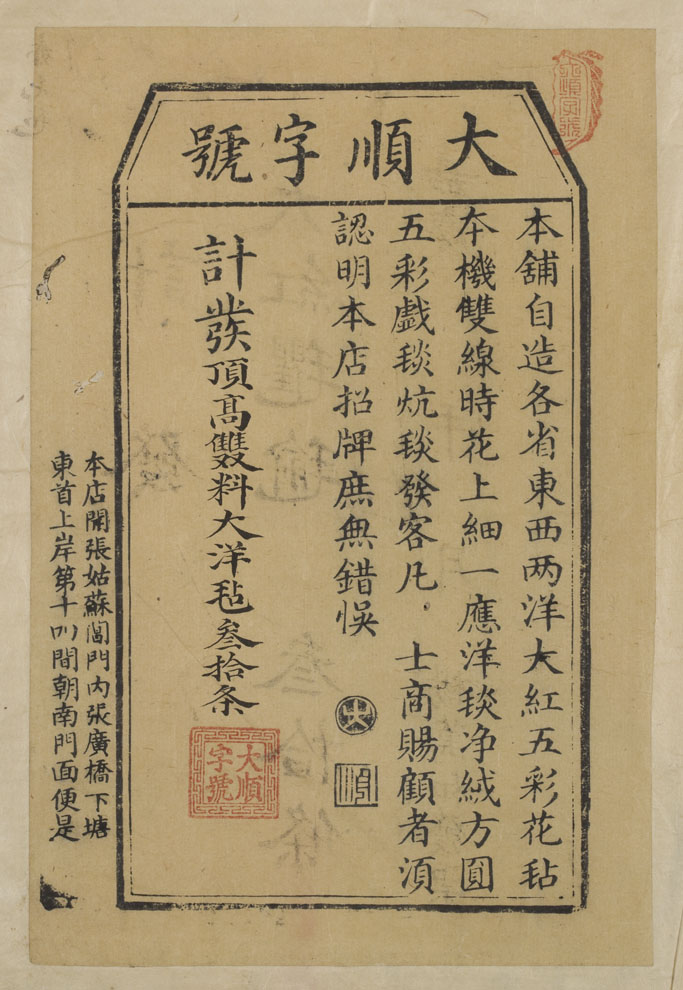 大順字號
本舖自造各省東西两洋大紅五彩花毡
本機雙線時花上細一應洋毯净絨方圓
五彩戲毯炕毯發客凡 士商賜顧者湏
認明本店招牌庶無錯悞
計發頂髙雙料大洋毡叁拾条
大順字號
本店開張姑蘇閶門内張廣橋下塘
東首上岸第十〣間朝南門面便是